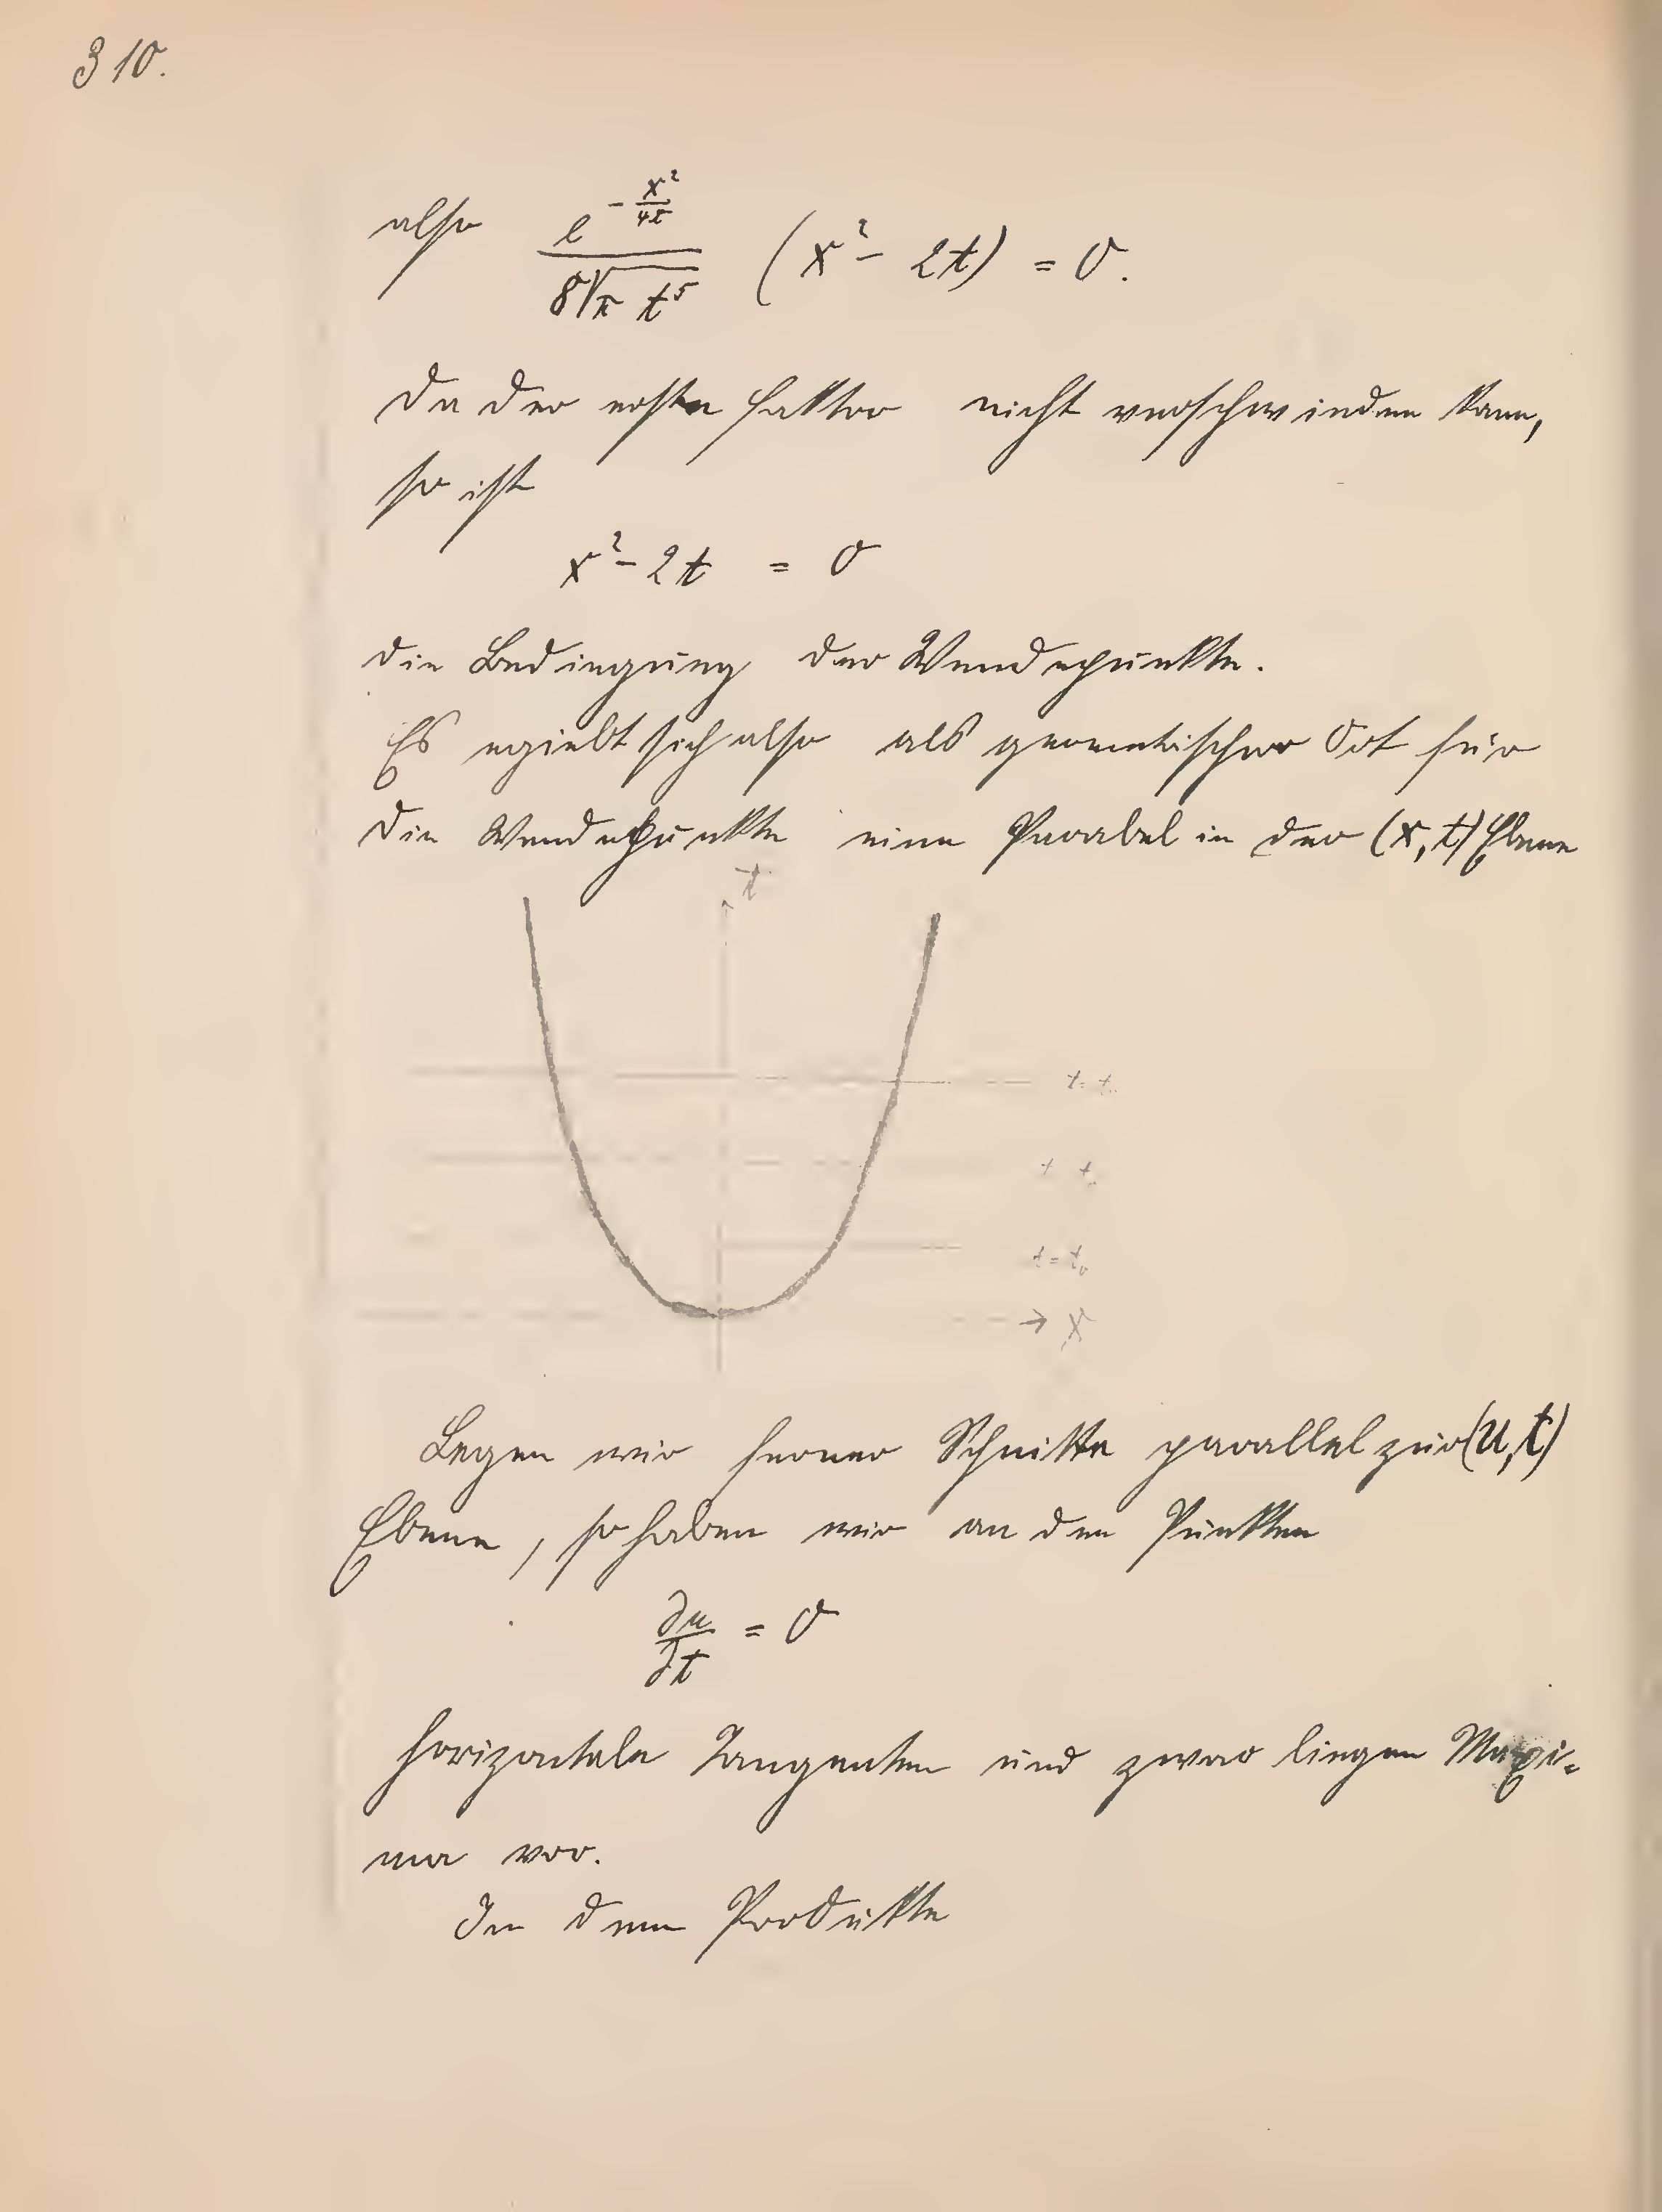 310.
also e^{-x²/4t} / 8√π t⁵ (x² - 2t) = 0.
Da der erste Faktor nicht verschwinden kann,
so ist
x² - 2t = 0
die Bedingung der Wendepunkte.
Es ergiebt sich also als geometrischer Ort für
die Wendepunkte eine Parabel in der (x,t) Ebene
t
t = t
t t₀
t = t₀
→ x
Legen wir ferner Schnitte parallel zur (u,t)
Ebene, so haben wir an den Punkten
∂u/∂t = 0
horizontale Tangenten und zwar liegen Maxi=
ma vor.
In dem Produkte